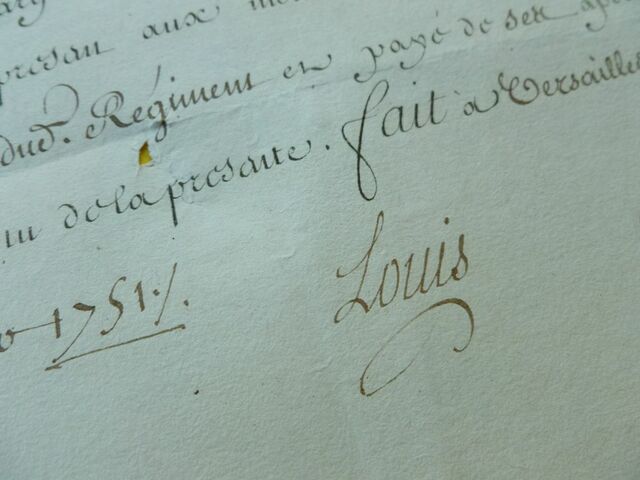 presan aux
dud. Régiment et payé de ses
de la presante. fait à Versailles
1751./. Louis